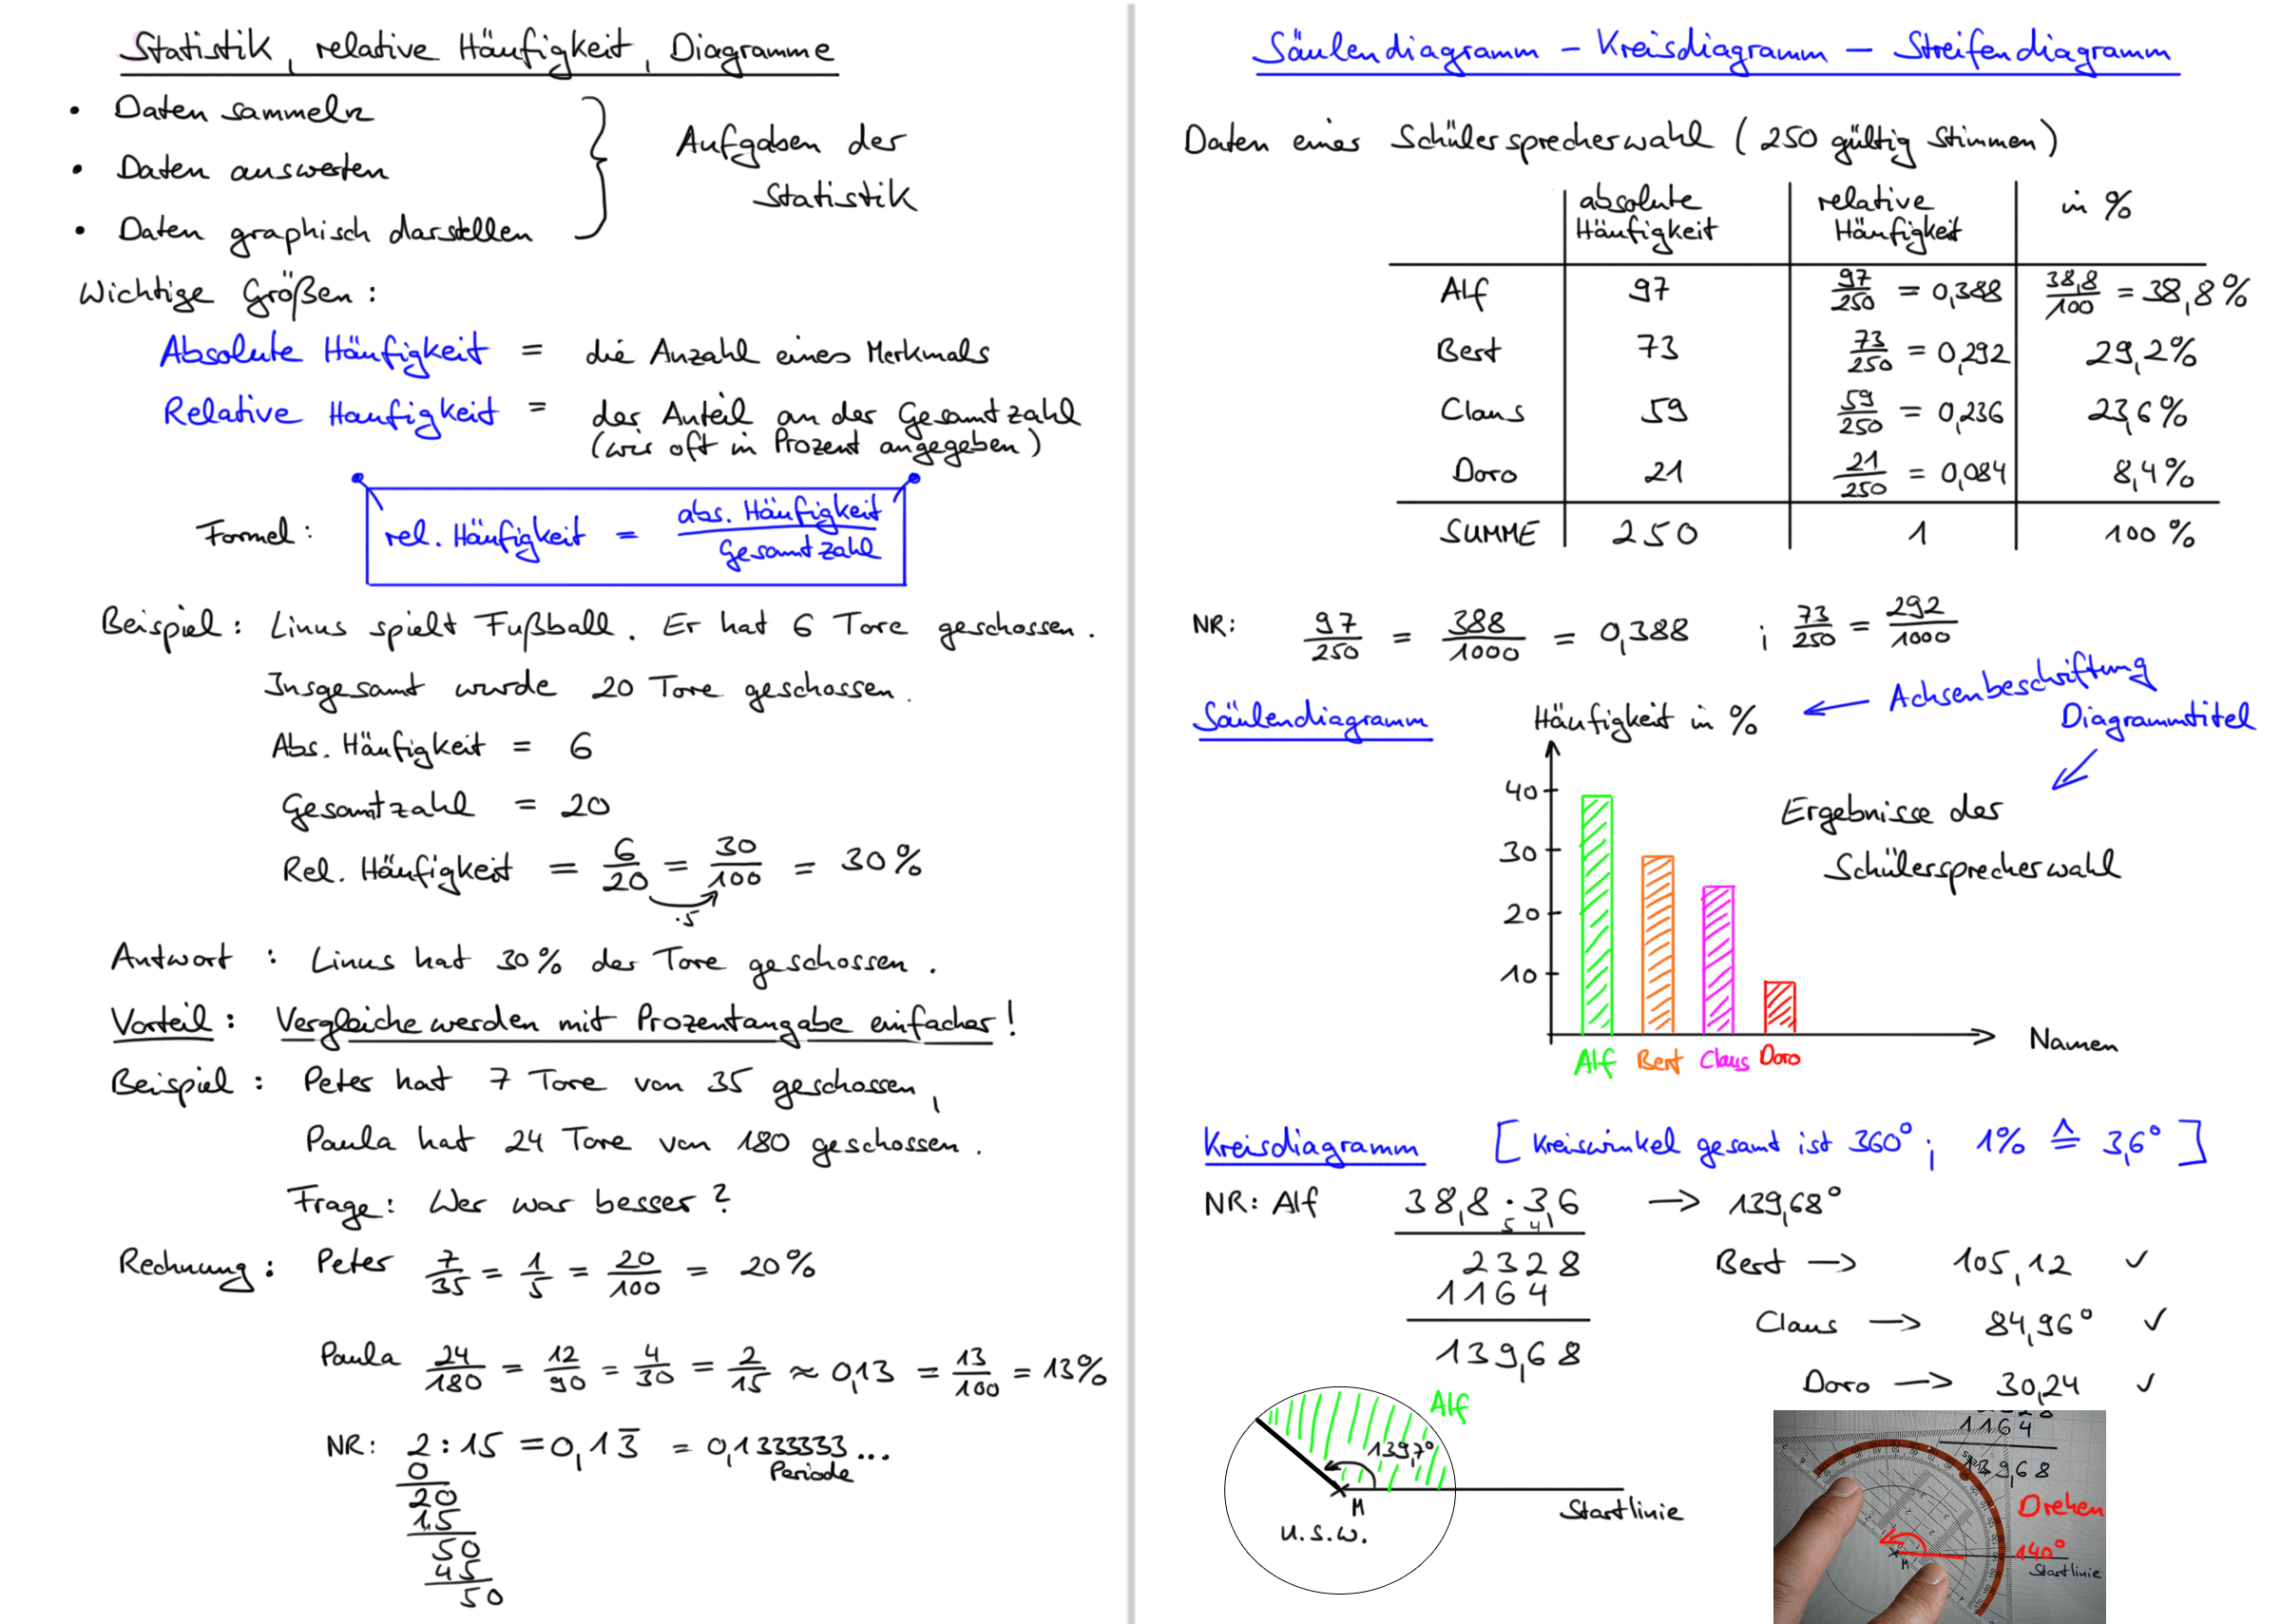 Statistik, relative Häufigkeit, Diagramme
• Daten sammeln
• Daten auswerten
• Daten graphisch darstellen
Aufgaben der
Statistik
Wichtige Größen:
Absolute Häufigkeit = die Anzahl eines Merkmals
Relative Haufigkeit = der Anteil an der Gesamtzahl
(wir oft in Prozent angegeben)
Formel: rel. Häufigkeit = abs. Häufigkeit / Gesamtzahl
Beispiel: Linus spielt Fußball. Er hat 6 Tore geschossen.
Insgesamt wurde 20 Tore geschossen.
Abs. Häufigkeit = 6
Gesamtzahl = 20
Rel. Häufigkeit = 6/20 = 30/100 = 30%
·5
Antwort: Linus hat 30% der Tore geschossen.
Vorteil: Vergleiche werden mit Prozentangabe einfacher!
Beispiel: Peter hat 7 Tore von 35 geschossen,
Paula hat 24 Tore von 180 geschossen.
Frage: Wer war besser?
Rechnung: Peter 7/35 = 1/5 = 20/100 = 20%
Paula 24/180 = 12/90 = 4/30 = 2/15 ≈ 0,13 = 13/100 = 13%
NR: 2:15 = 0,13̅ = 0,1333333...
Periode
0
20
15
50
45
50
Säulendiagramm – Kreisdiagramm – Streifendiagramm
Daten einer Schülersprecherwahl (250 gültig Stimmen)
absolute Häufigkeit relative Häufigkeit in %
Alf 97 97/250 = 0,388 38,8/100 = 38,8%
Bert 73 73/250 = 0,292 29,2%
Claus 59 59/250 = 0,236 23,6%
Doro 21 21/250 = 0,084 8,4%
SUMME 250 1 100%
NR: 97/250 = 388/1000 = 0,388 ; 73/250 = 292/1000
Säulendiagramm
Häufigkeit in % ← Achsenbeschriftung
Diagrammtitel
Ergebnisse der
Schülersprecherwahl
40
30
20
10
Namen
Alf Bert Claus Doro
Kreisdiagramm [Kreiswinkel gesamt ist 360°; 1% ≙ 3,6°]
NR: Alf 38,8 · 3,6 → 139,68°
5 4
2328
1164
139,68
Bert → 105,12 ✓
Claus → 84,96° ✓
Doro → 30,24 ✓
Alf
139,7°
M
Startlinie
u.s.w.
1164
139,68
Drehen
140°
M
Startlinie